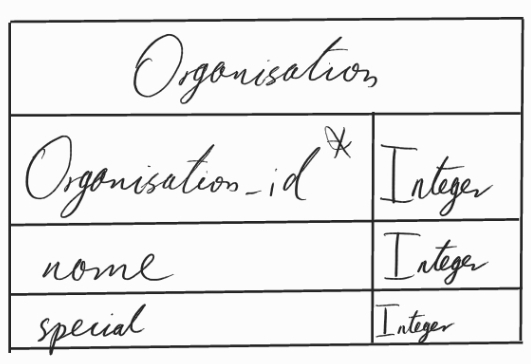 Organisation
Organisation_id* Integer
nome Integer
special Integer